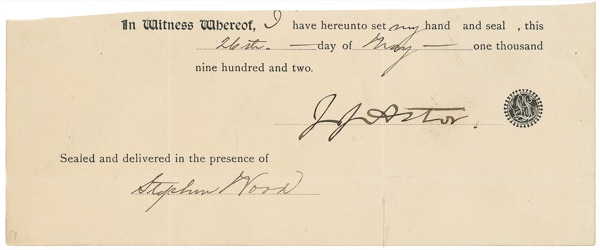 In Witness Whereof, I have hereunto set my hand and seal , this
26th. — day of May — one thousand
nine hundred and two.
J J Astor.
Sealed and delivered in the presence of
Stephen Wood